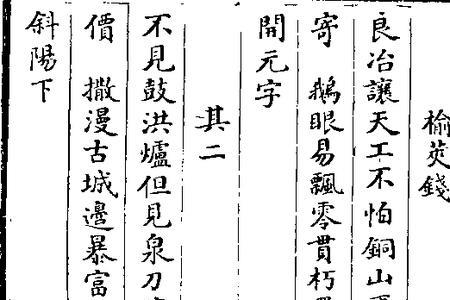 榆莢錢
良冶讓天工不怕銅山
寄　鵝眼易飄零貫朽
開元字
其二
不見鼓洪爐但見泉刀
價　撒漫古城邊暴富
斜陽下